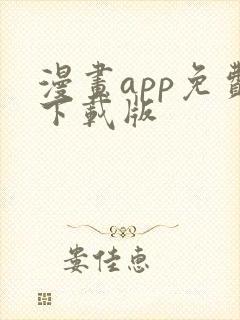 漫畫app免費
下載版
娄佳惠